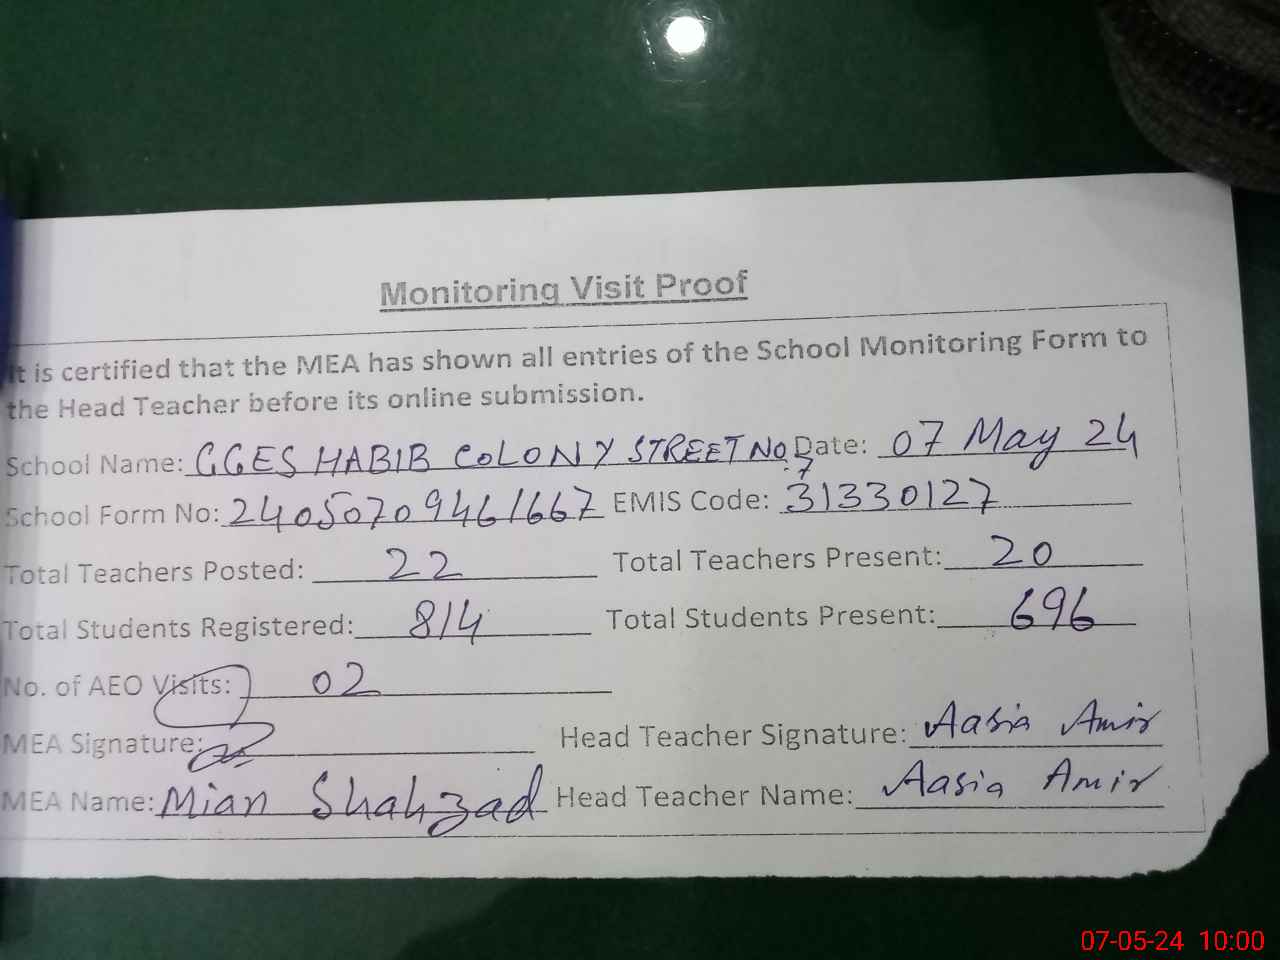 Monitoring Visit Proof
It is certified that the MEA has shown all entries of the School Monitoring Form to
the Head Teacher before its online submission.
School Name: GGES HABIB COLONY STREET NO.7 Date: 07 May 24
School Form No: 24050709461667 EMIS Code: 31330127
Total Teachers Posted: 22 Total Teachers Present: 20
Total Students Registered: 814 Total Students Present: 696
No. of AEO Visits: 02
MEA Signature: Head Teacher Signature: Aasia Amir
MEA Name: Mian Shahzad Head Teacher Name: Aasia Amir
07-05-24 10:00